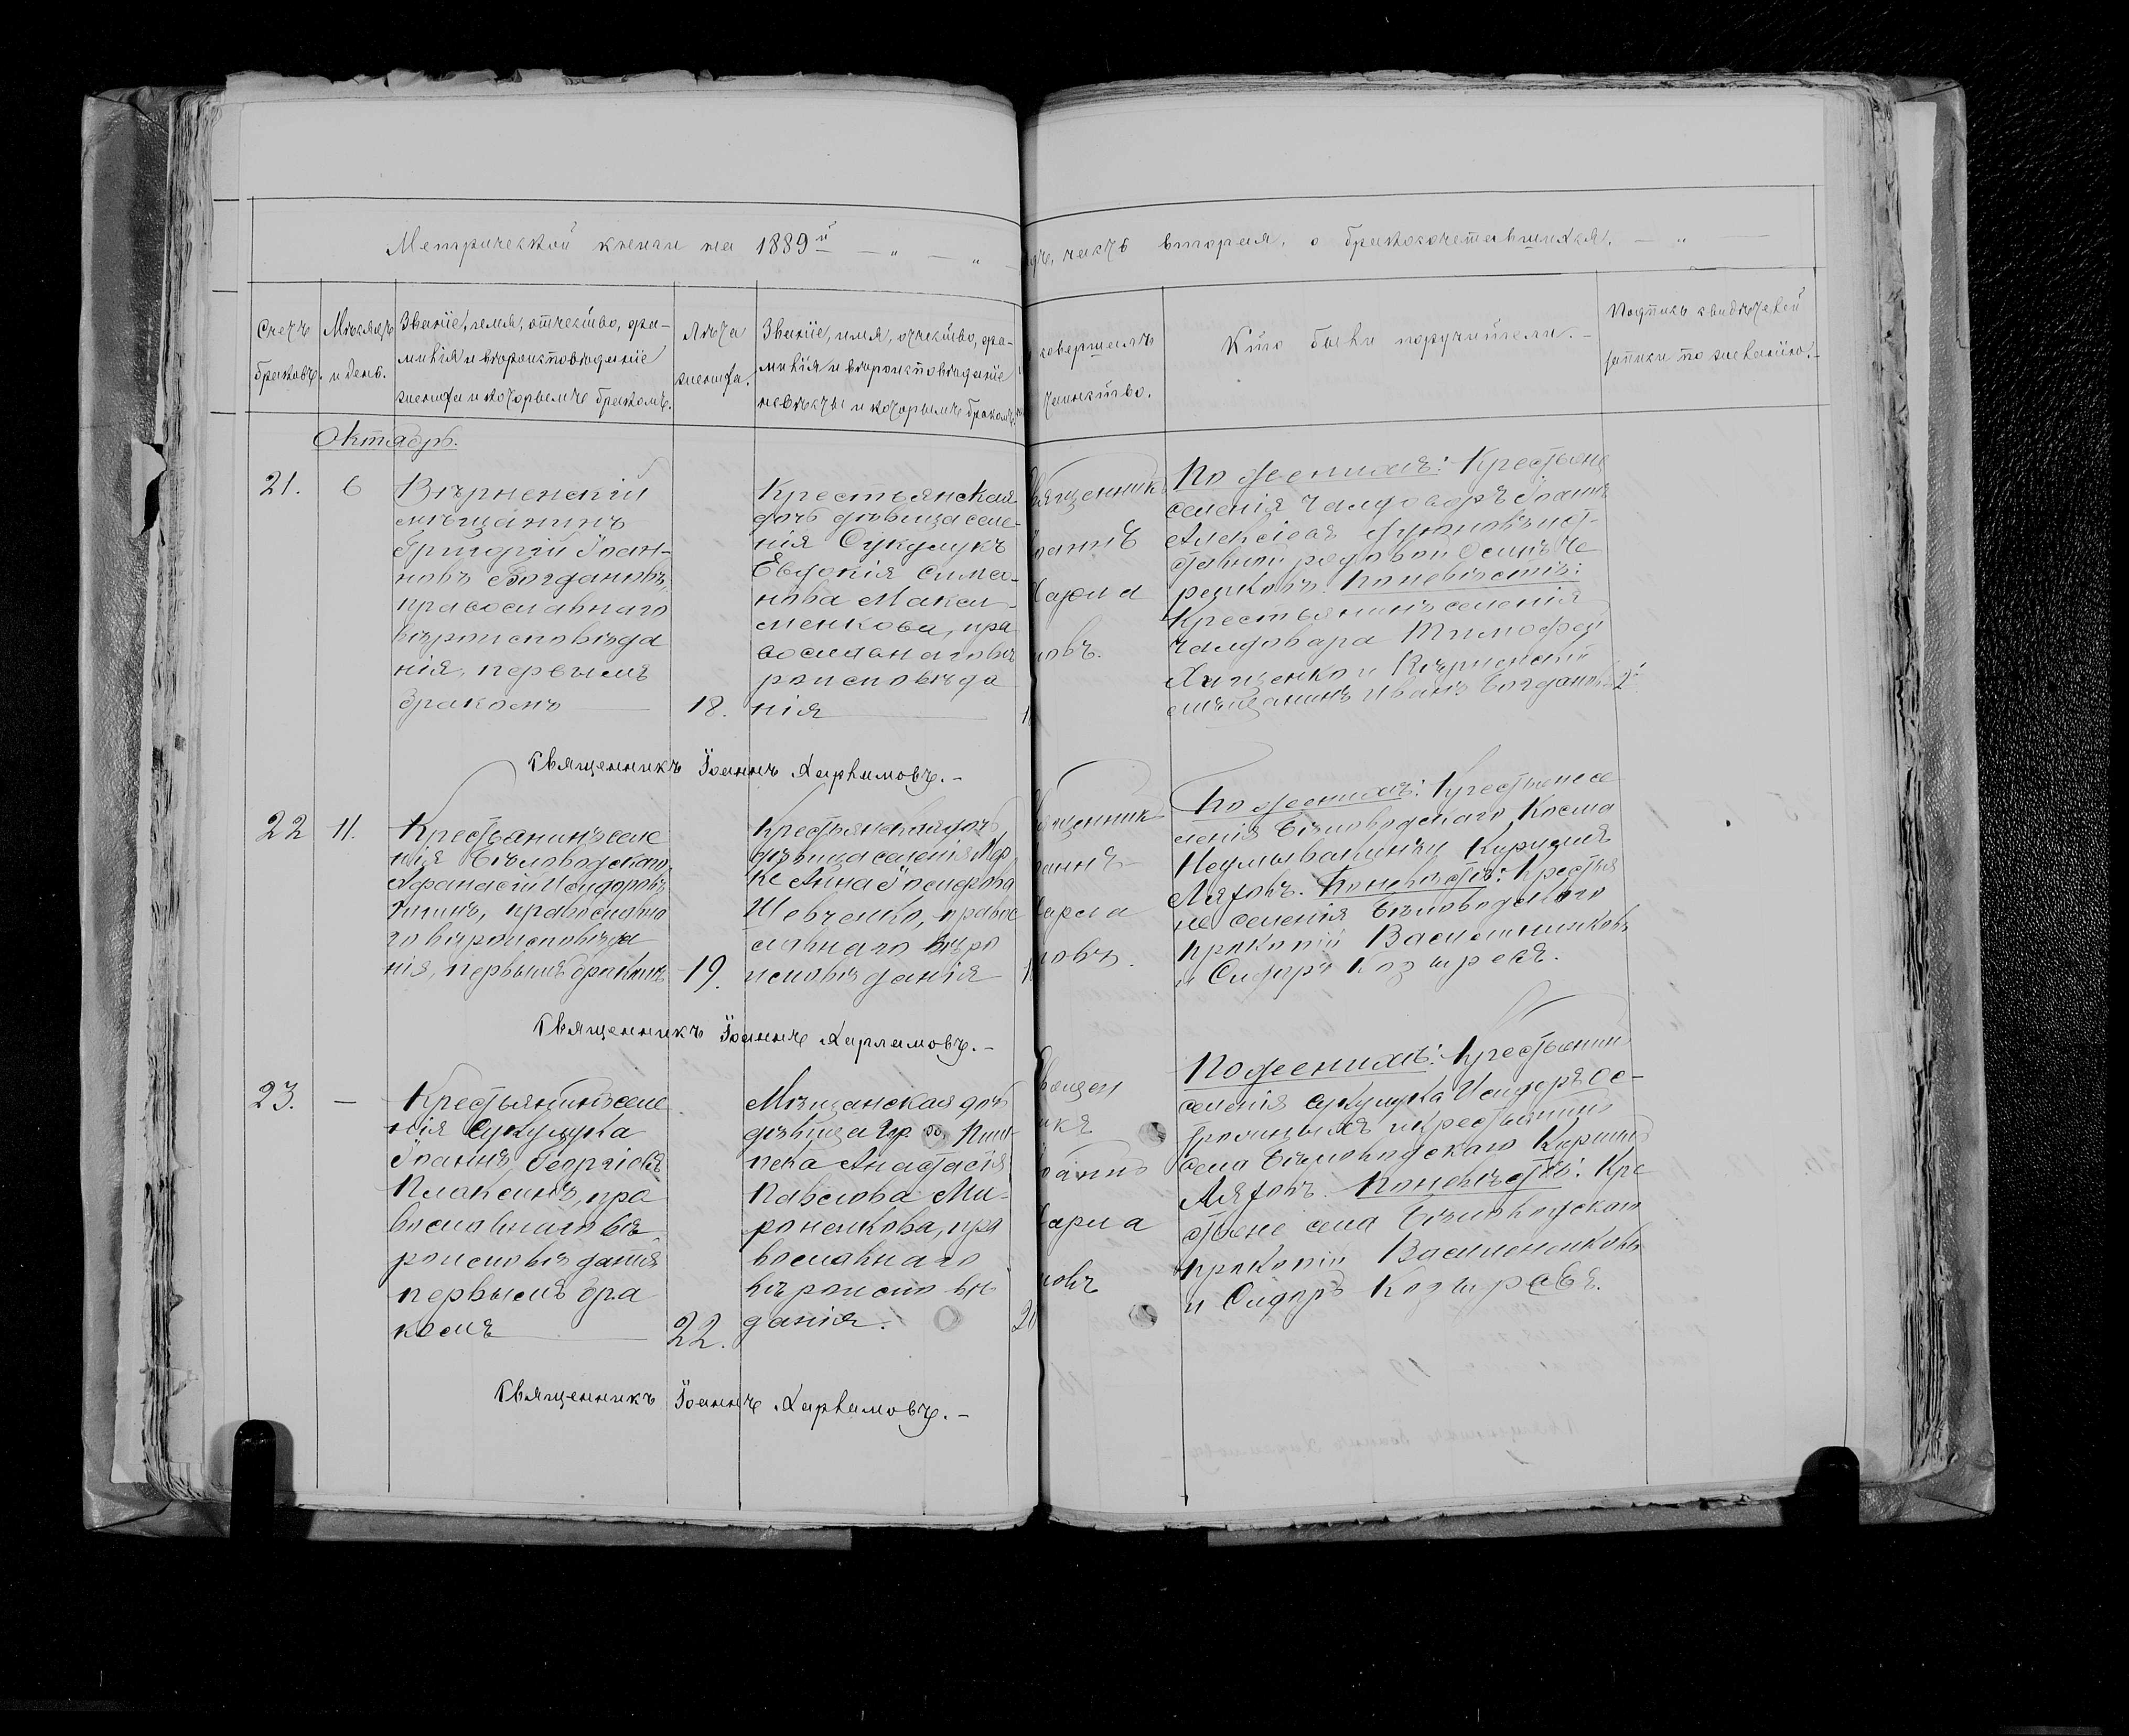 Метрической книги на 1889 й — „ — „ —
часть вторая, о бракосочетавшихся. — „ —
Счетъ
браковъ.
Мѣсяцъ
и день.
Званіе, имя, отчество, фа-
милія и вѣроисповѣданіе
жениха и которымъ бракомъ.
Лѣта
жениха.
Званіе, имя, отчество, фа-
милія и вѣроисповѣданіе
невѣсты и которымъ бракомъ.
совершалъ
таинство.
Кто были поручители. —
Подпись свидѣтелей
записи по желанію. —
Октябрь.
21.
6
Вѣрненскій
мѣщанинъ
Григорій Іоан-
новъ Богдановъ,
православнаго
вѣроисповѣда
нія, первымъ
бракомъ
18.
Крестьянская
дочь дѣвица селе-
нія Сукулукъ
Евдокія Симео-
нова Максимен
менкова, пра
вославнаго вѣ
роисповѣда
нія
вященникъ
оаннъ
Харла
мовъ.
По женихѣ: Крестьяне
селенія Чалдоваръ Іоаннъ
Алексѣевъ
рядовой Осипъ Че
репковъ. По невѣстѣ:
Крестьянинъ селенія
Чалдовара Тимофей
и Вѣрненскій
мѣщанинъ Иванъ Богдановъ
Священникъ Іоаннъ Харламовъ. —
22
11.
Крестьянинъ селе
нія Бѣловодскаго,
Афанасій Исидоровъ
православна
го вѣроисповѣда
нія, первымъ бракомъ
19.
Крестьянская дочь
дѣвица селенія Мер
ке Анна Іосифова
Шевченко, правос
славнаго вѣро
исповѣданія
ященникъ
оаннъ
Харла
мовъ.
По женихѣ: Крестьяне се
ленія Бѣловодскаго Косма
Неумывакинъ и
Ляховъ. По невѣстѣ: Крестья
не селенія Бѣловодскаго
Прокопій Василенниковъ
и Сидоръ Козыревъ.
Священникъ Іоаннъ Харламовъ. —
23.
—
Крестьянинъ селе
нія Сукулука
Іоаннъ Георгіевъ
Плаксинъ, пра
вославнаго вѣ-
роисповѣданія
первымъ бра
комъ
22.
Мѣщанская дочь
дѣвица гор. Пиш-
пека Анастасія
Павлова Ми-
роненкова, пра
вославнаго
вѣроисповѣ
данія.
вящен
икъ
оаннъ
Харла
мовъ
По женихѣ: Крестьянинъ
селенія Сукулука Исидоръ
и крестьянинъ
села Бѣловодскаго
Ляховъ. По невѣстѣ: Кре
стьяне села Бѣловодскаго
Прокопій Василенниковъ
и Сидоръ Козыревъ.
Священникъ Іоаннъ Харламовъ. —